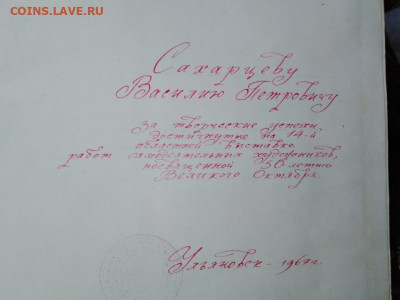 COINS.LAVE.RU
Сахарцеву
Василию Петровичу
За творческие успехи,
достигнутые на 14-й
областной выставке
работ самодеятельных художников,
посвященной 50-летию
Великого Октября
Ульяновск - 1967г.